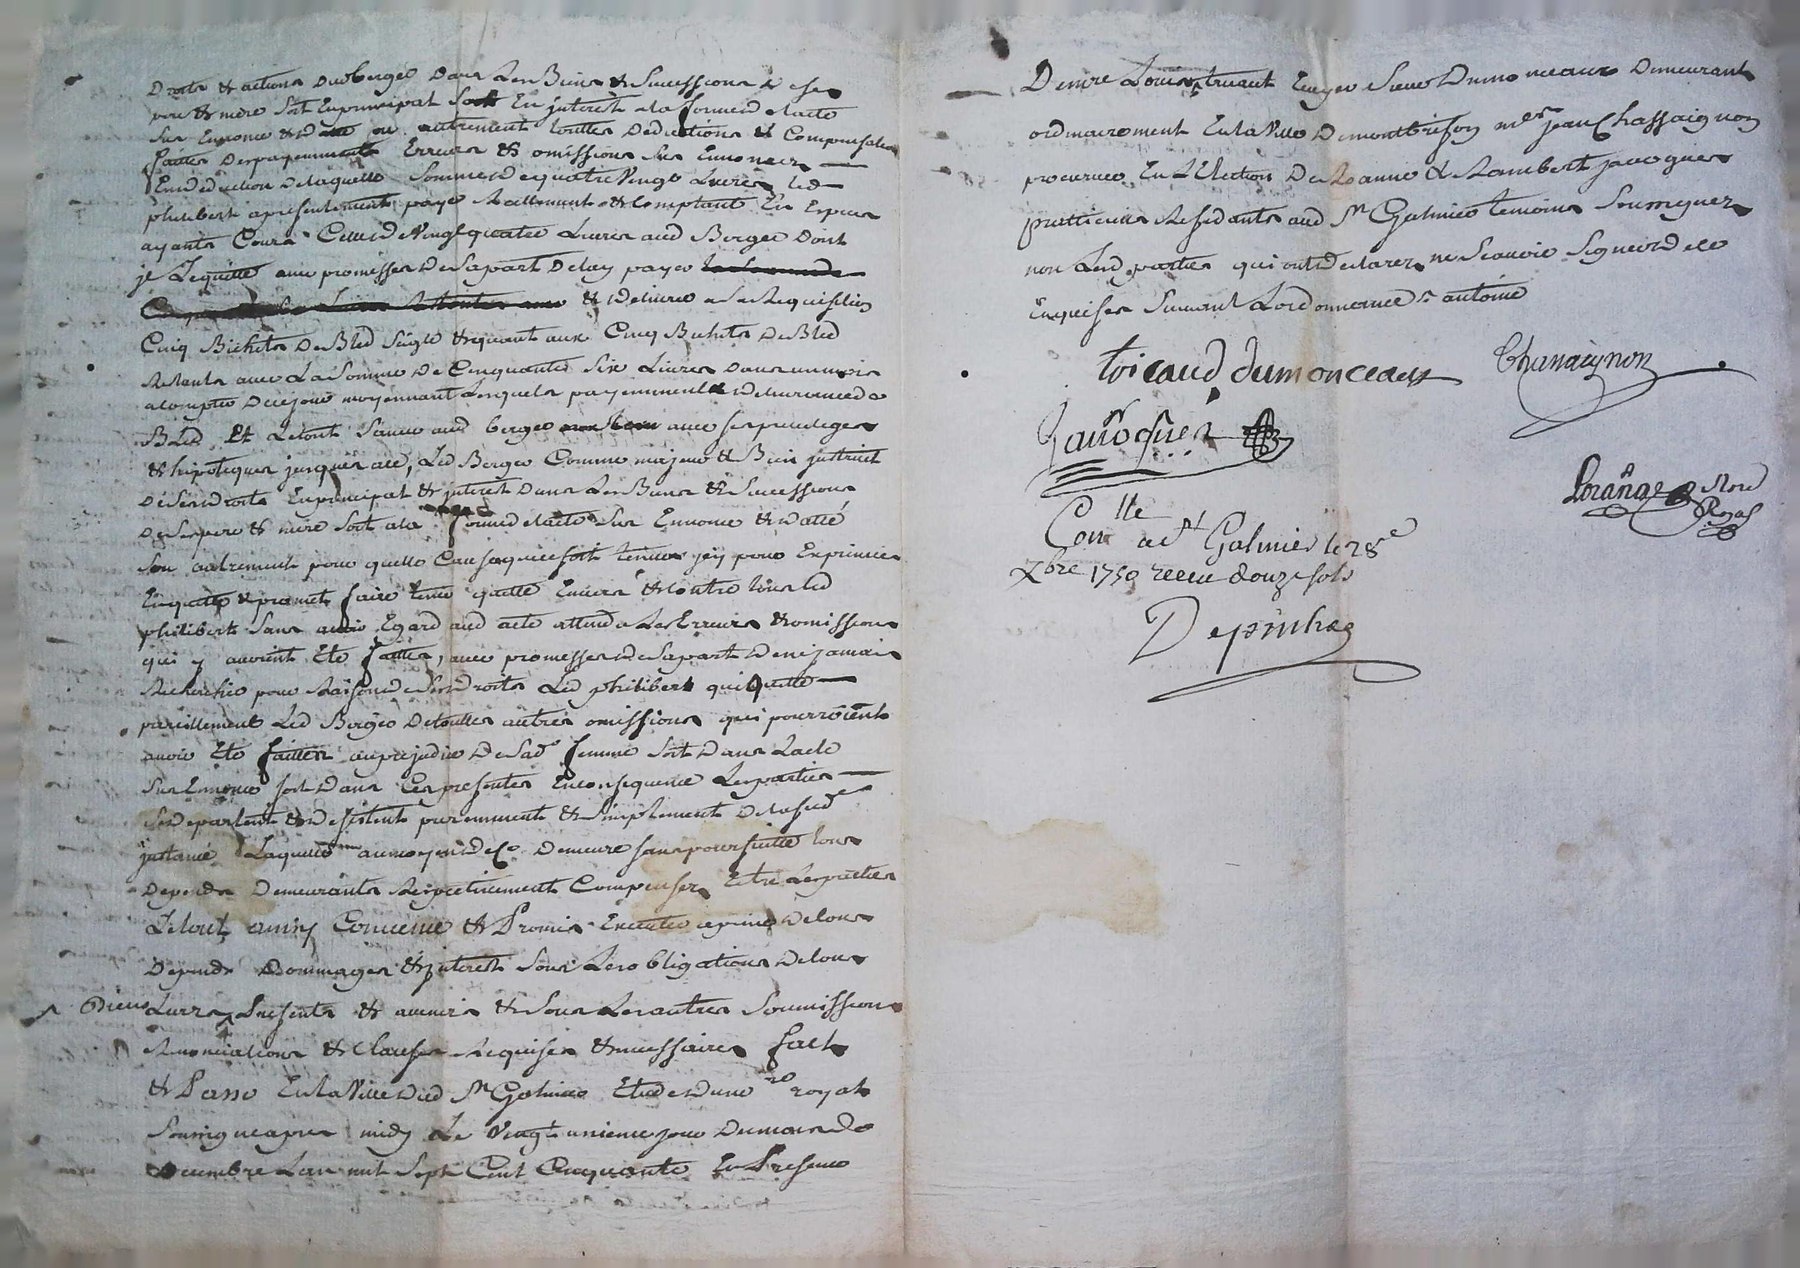 Droits & actions dud berger dans Les Biens & Successions de ses
pere & mere Soit En principal Soit En jnterest a la forme de lacte
Sus Ennoncé & datté ou autrement touttes deductions & Compensations
faittes des payemments Erreurs & omissions Sus Ennoncés
En deduction de laquelle Somme de quatre Vingt Livres led
philibert a presentement payé Reellement & Comptant En Especes
ayants Cours Celle de Vingt quatre Livres aud Berger dont
jl Le quitte avec promesse de Sa part de luy payer
& delivrer a Sa Requisition
Cinq Bichets de Bled Seigle & quant aux Cinq Bichets de Bled
Restants avec La Somme de Cinquante Six Livres dans un mois
a compter de ce jour moyennant Lesquels payemment & delivrance de
Bled Et Le tout Sauve aud berger avec ses privileges
& hipoteques jusques a ce, Led Berger Comme majeur & Bien jnstruit
de Ses droits En principal & jnterest dans Les Biens & Successions
de Ses pere & mere Soit a la forme de lacte Sus Ennoncé & datté
Sou autrement pour quelle Cause que ce soit tenue jcy pour Exprimée
En quitte & promet faire tenir quitte Envers & Contre tous led
philibert Sans avoir Egard aud acte attendu Les Erreurs & omissions
qui y avoient Eté faittes, avec promesse de Sa part de ne jamais
Rechercher pour Raison de Ses droits Led philibert qui quitte
pareillement Led Berger de touttes autres omissions qui pourroient
avoir Eté faittes au prejudice de Sad.e femme Soit dans Lacte
Sus Ennoncé soit dans Ces presentes En consequence Les parties
Se departent & desistent puremment & Simplement de la sud.e
jnstance Laquelle au moyen de ce demeure sans poursuitte tous
depends demeurants Respectivement Compensés Entre Les parties
Le tout ainsy Convenu & Promis Executer a peine de tous
depends dommages & jnterest Sous Les obligations de tous
Biens Leurs Presents & avenirs & Sous Les autres Soumissions
Renonciations & Clauses Requises & necessaires fait
& Passé En la Ville dud St Galmier Etude du no.re royal
Soussigné apres midy Le Vingt unieme jour du mois de
decembre Lan mil Sept Cent Cinquante En Presence
De mre Louis tricaut Ecuyer Sieur Dumonceaux demeurant
ordinairement En la Ville de montbrison me.r jean Chassaignon
procureur En L'Election de Roanne & Rambert jacoques
pratticiens Residants aud St Galmier temoins Soussignes
non Les d parties qui ont declarés ne Scavoir Signer de ce
Enquises Suivant Lordonnance
tricaud dumonceaux
Chassaignon
jacoques
Lorange No.re Royal
Con.lle a St Galmier le 28e
Xbre 1750 receu douze sols